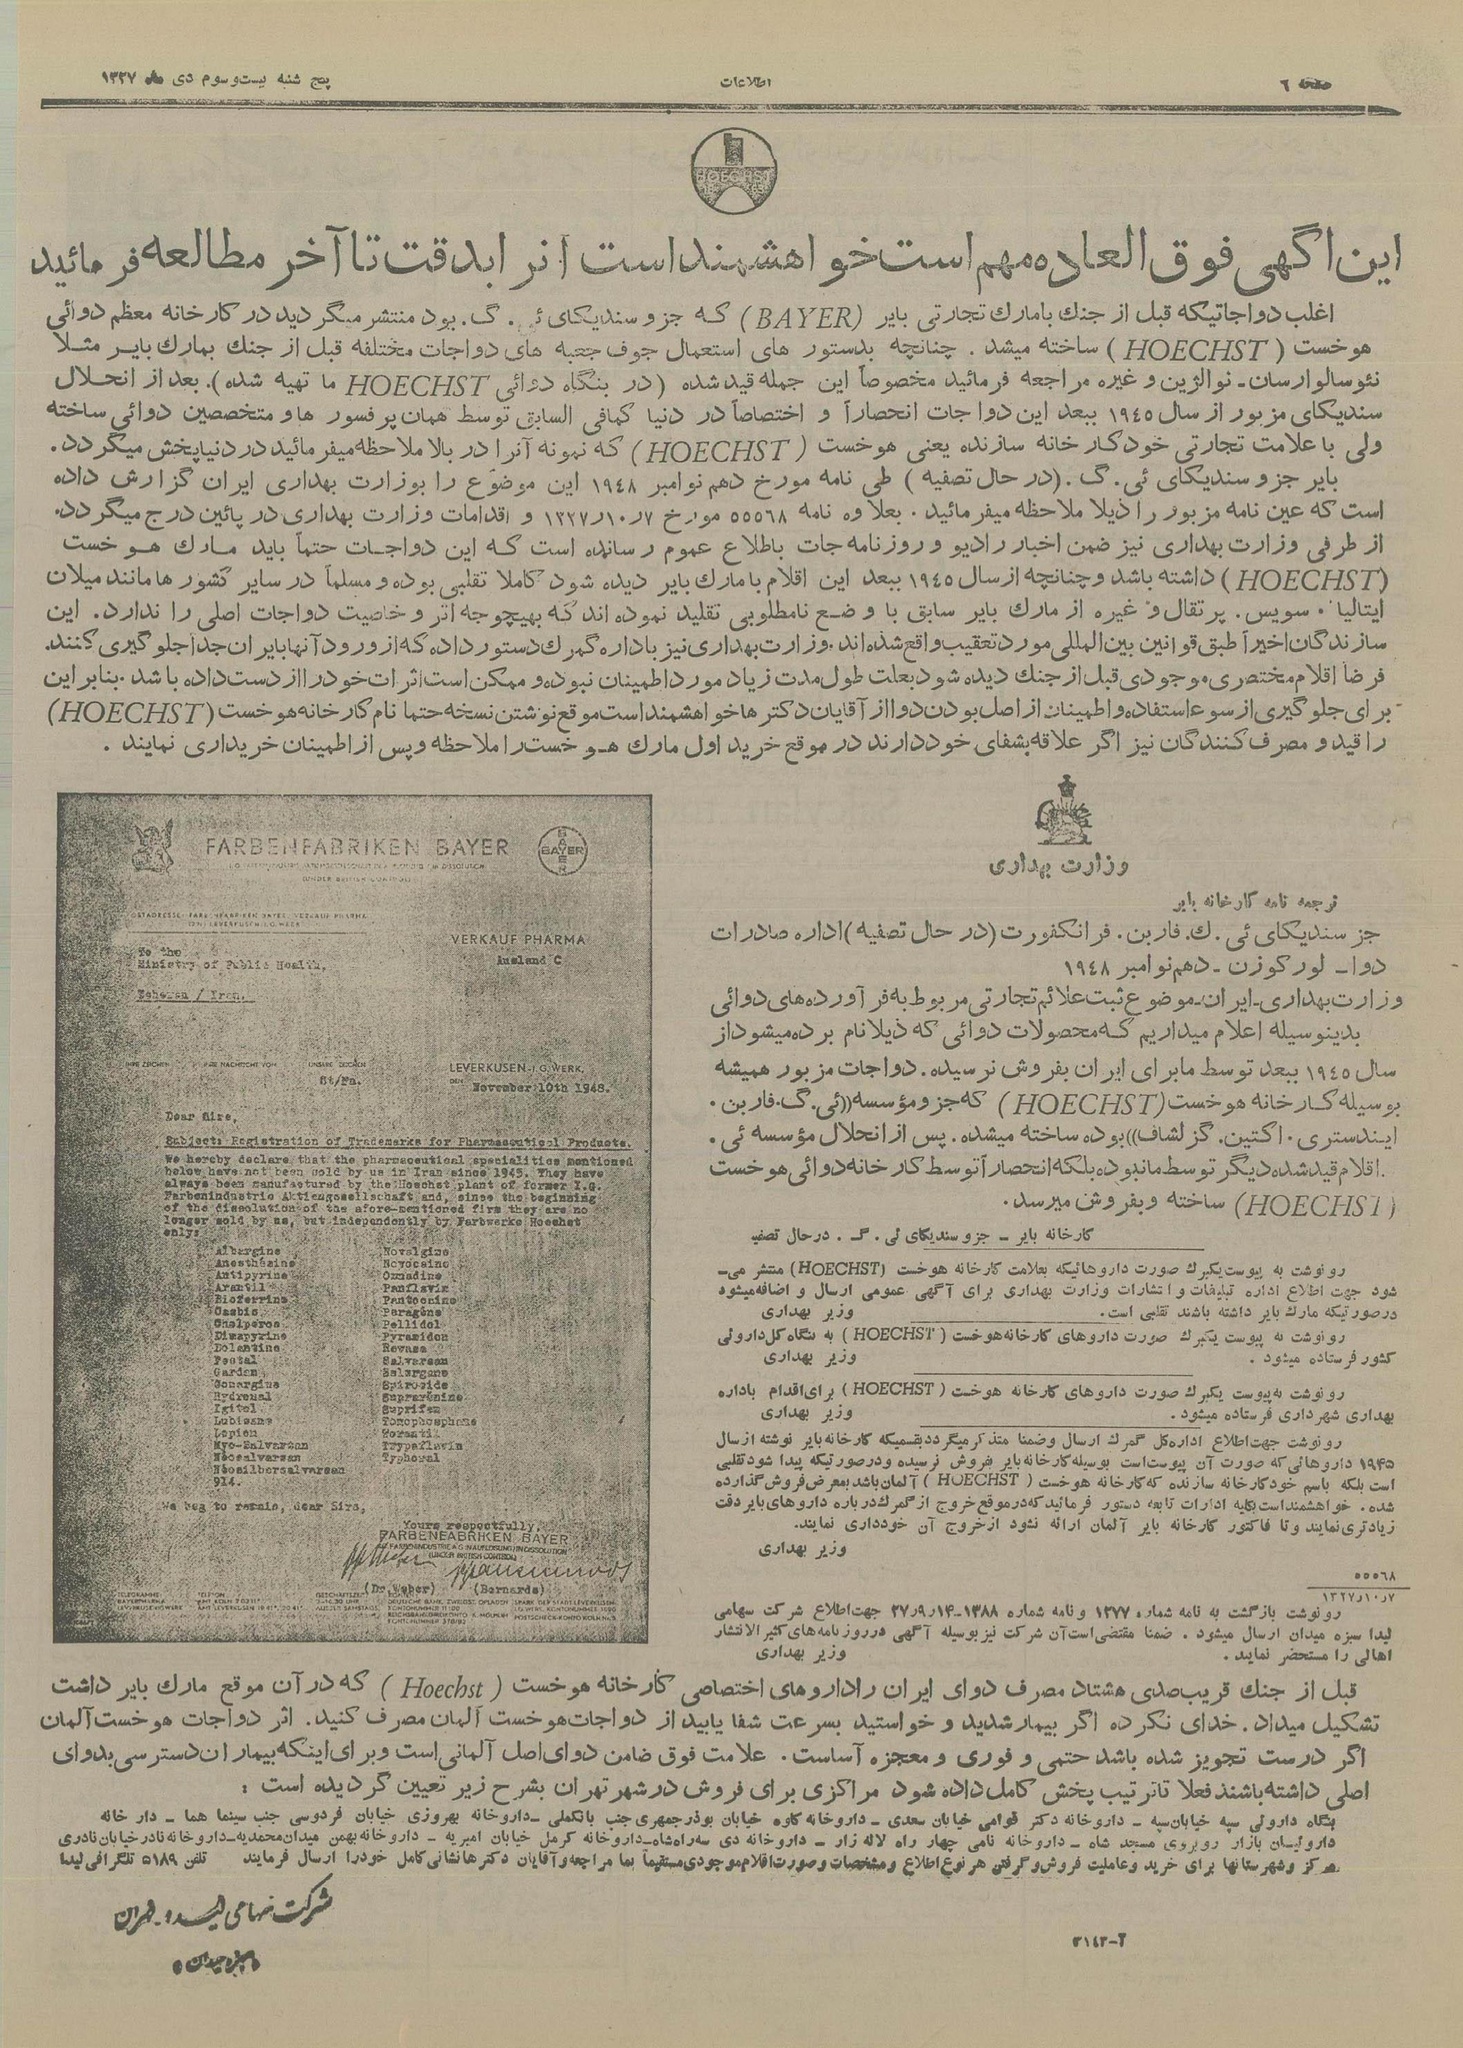 صفحه ٦
اطلاعات
پنج شنبه بیست‌وسوم دی ماه ۱۳۲۷
HOECHST
این آگهی فوق العاده مهم است خواهشمند است آنرا بدقت تا آخر مطالعه فرمائید
اغلب دواجاتیکه قبل از جنك بامارك تجارتی بایر (BAYER) که جزو سندیکای ئی. گ. بود منتشر میگردید در کارخانه معظم دوائی
هوخست (HOECHST) ساخته میشد. چنانچه بدستور های استعمال جوف جعبه های دواجات مختلفه قبل از جنك بمارك بایر مثلا
نئوسالوارسان ـ نوالژین و غیره مراجعه فرمائید مخصوصاً این جمله قید شده (در بنگاه دوائی HOECHST ما تهیه شده). بعد از انحلال
سندیکای مزبور از سال ۱۹٤٥ ببعد این دواجات انحصاراً و اختصاصاً در دنیا کمافی السابق توسط همان پرفسور ها و متخصصین دوائی ساخته
ولی با علامت تجارتی خود کارخانه سازنده یعنی هوخست (HOECHST) که نمونه آنرا در بالا ملاحظه میفرمائید در دنیا پخش میگردد.
بایر جزو سندیکای ئی. گ. (در حال تصفیه) طی نامه مورخ دهم نوامبر ۱۹٤۸ این موضوع را بوزارت بهداری ایران گزارش داده
است که عین نامه مزبور را ذیلا ملاحظه میفرمائید. بعلاوه نامه ٥٥٥٦۸ مورخ ۱۳۲۷٫۱۰٫۷ و اقدامات وزارت بهداری در پائین درج میگردد.
از طرفی وزارت بهداری نیز ضمن اخبار رادیو و روزنامه جات باطلاع عموم رسانده است که این دواجات حتماً باید مارك هوخست
(HOECHST) داشته باشد و چنانچه از سال ۱۹٤٥ ببعد این اقلام با مارك بایر دیده شود کاملا تقلبی بوده و مسلماً در سایر کشور ها مانند میلان
ایتالیا. سویس. پرتقال و غیره از مارك بایر سابق با وضع نامطلوبی تقلید نموده اند که بهیچوجه اثر و خاصیت دواجات اصلی را ندارد. این
سازندگان اخیراً طبق قوانین بین‌المللی مورد تعقیب واقع شده‌اند. وزارت بهداری نیز باداره گمرك دستور داده که از ورود آنها بایران جدا جلوگیری کنند.
فرضا اقلام مختصری موجودی قبل از جنك دیده شود بعلت طول مدت زیاد مورد اطمینان نبوده و ممکن است اثرات خود را از دست داده باشد. بنابر این
برای جلوگیری از سوء استفاده و اطمینان از اصل بودن دوا از آقایان دکتر ها خواهشمند است موقع نوشتن نسخه حتما نام کارخانه هوخست (HOECHST)
را قید و مصرف کنندگان نیز اگر علاقه بشفای خود دارند در موقع خرید اول مارك هوخست را ملاحظه و پس از اطمینان خریداری نمایند.
وزارت بهداری
ترجمه نامه کارخانه بایر
جز سندیکای ئی. ك. فاربن. فرانکفورت (در حال تصفیه) اداره صادرات
دوا ـ لورکوزن ـ دهم نوامبر ۱۹٤۸
وزارت بهداری ـ ایران ـ موضوع ثبت علائم تجارتی مربوط به فرآورده‌های دوائی
بدینوسیله اعلام میداریم که محصولات دوائی که ذیلا نام برده میشود از
سال ۱۹٤٥ ببعد توسط ما برای ایران بفروش نرسیده. دواجات مزبور همیشه
بوسیله کارخانه هوخست (HOECHST) که جزو مؤسسه ((ئی. گ. فاربن.
ایندستری. اکتین. گزلشاف)) بوده ساخته میشده. پس از انحلال مؤسسه ئی.
اقلام قید شده دیگر توسط ما نبوده بلکه انحصاراً توسط کارخانه دوائی هوخست
(HOECHST) ساخته و بفروش میرسد.
کارخانه بایر ـ جزو سندیکای ئی. گ. درحال تصفیه
رونوشت به پیوست یکبرك صورت داروهائیکه بعلامت کارخانه هوخست (HOECHST) منتشر می‌ـ
شود جهت اطلاع اداره تبلیغات و انتشارات وزارت بهداری برای آگهی عمومی ارسال و اضافه میشود
درصورتیکه مارك بایر داشته باشند تقلبی است. وزیر بهداری
رونوشت به پیوست یکبرك صورت داروهای کارخانه هوخست (HOECHST) به بنگاه کل داروئی
کشور فرستاده میشود. وزیر بهداری
رونوشت به پیوست یکبرك صورت داروهای کارخانه هوخست (HOECHST) برای اقدام باداره
بهداری شهرداری فرستاده میشود. وزیر بهداری
رونوشت جهت اطلاع اداره کل گمرك ارسال و ضمنا متذکر میگردد بقسمیکه کارخانه بایر نوشته از سال
۱۹٤٥ داروهائی که صورت آن پیوست است بوسیله کارخانه بایر بفروش نرسیده و در صورتیکه پیدا شود تقلبی
است بلکه باسم خود کارخانه سازنده که کارخانه هوخست (HOECHST) آلمان باشد بمعرض فروش گذارده
شده. خواهشمند است بکلیه ادارات تابعه دستور فرمائید که در موقع خروج از گمرك درباره داروهای بایر دقت
زیادتری نمایند و تا فاکتور کارخانه بایر آلمان ارائه نشود از خروج آن خودداری نمایند.
وزیر بهداری
٥٥٥٦۸
۱۳۲۷٫۱۰٫۷
رونوشت بازگشت به نامه شماره ۱۳۷۷ و نامه شماره ۱۳۸۸-۲۷٫۹٫۱٤ جهت اطلاع شرکت سهامی
لیدا سبزه میدان ارسال میشود. ضمنا مقتضی است آن شرکت نیز بوسیله آگهی در روزنامه‌های کثیرالانتشار
اهالی را مستحضر نمایند. وزیر بهداری
FARBENFABRIKEN BAYER
BAYER
(UNDER BRITISH CONTROL)
To the
Ministry of Public Health,
Teheran / Iran.
VERKAUF PHARMA
Ausland C
IHRE ZEICHEN IHRE NACHRICHT VOM UNSERE ZEICHEN
St/Fa.
LEVERKUSEN-I.G. WERK,
DEN November 10th 1948.
Dear Sirs,
Subject: Registration of Trademarks for Pharmaceutical Products.
We hereby declare that the pharmaceutical specialities mentioned
below have not been sold by us in Iran since 1945. They have
always been manufactured by the Hoechst plant of former I.G.
Farbenindustrie Aktiengesellschaft and, since the beginning
of the dissolution of the afore-mentioned firm they are no
longer sold by us, but independently by Farbwerke Hoechst
only:
Albargine Novalgine
Anesthesine Novocaine
Antipyrine Omnadine
Arantil Panflavin
Bioferrine Pantocaine
Casbis Paragène
Cholperos Pellidol
Dimapyrine Pyramidon
Dolantine Revasa
Festal Salvarsan
Gardan Salargone
Gonargine Spirocide
Hydrenal Suprarénine
Igitol Suprifen
Lubisane Tonophosphane
Lopion
Myo-Salvarsan Trypaflavin
Néosalvarsan Typhoral
Néosilbersalvarsan
914.
We beg to remain, dear Sirs,
Yours respectfully,
FARBENFABRIKEN BAYER
(UNDER BRITISH CONTROL)
(Dr. Weber) (Bernards)
قبل از جنك قریب صدی هشتاد مصرف دوای ایران را داروهای اختصاصی کارخانه هوخست (Hoechst) که در آن موقع مارك بایر داشت
تشکیل میداد. خدای نکرده اگر بیمار شدید و خواستید بسرعت شفا یابید از دواجات هوخست آلمان مصرف کنید. اثر دواجات هوخست آلمان
اگر درست تجویز شده باشد حتمی و فوری و معجزه آساست. علامت فوق ضامن دوای اصل آلمانی است و برای اینکه بیماران دسترسی بدوای
اصلی داشته باشند فعلا تا ترتیب پخش کامل داده شود مراکزی برای فروش در شهر تهران بشرح زیر تعیین گردیده است:
بنگاه داروئی سپه خیابان سپه ـ داروخانه دکتر قوامی خیابان سعدی ـ داروخانه کاوه خیابان بوذرجمهری جنب بانک‌ملی ـ داروخانه بهروزی خیابان فردوسی جنب سینما هما ـ دار خانه
دارولیسان بازار روبروی مسجد شاه ـ داروخانه نامی چهار راه لاله زار ـ داروخانه دی سه‌راه‌شاه ـ داروخانه کرمل خیابان امیریه ـ داروخانه بهمن میدان محمدیه ـ داروخانه نادر خیابان نادری
مرکز و شهرستانها برای خرید و عاملیت فروش و گرفتن هر نوع اطلاع و مشخصات و صورت اقلام موجودی مستقیماً بما مراجعه و آقایان دکترها نشانی کامل خود را ارسال فرمایند تلفن ٥۱۸۹ تلگرافی لیدا
شرکت سهامی لیدا ـ تهران
سبزه میدان
۲-۳۱٤۳